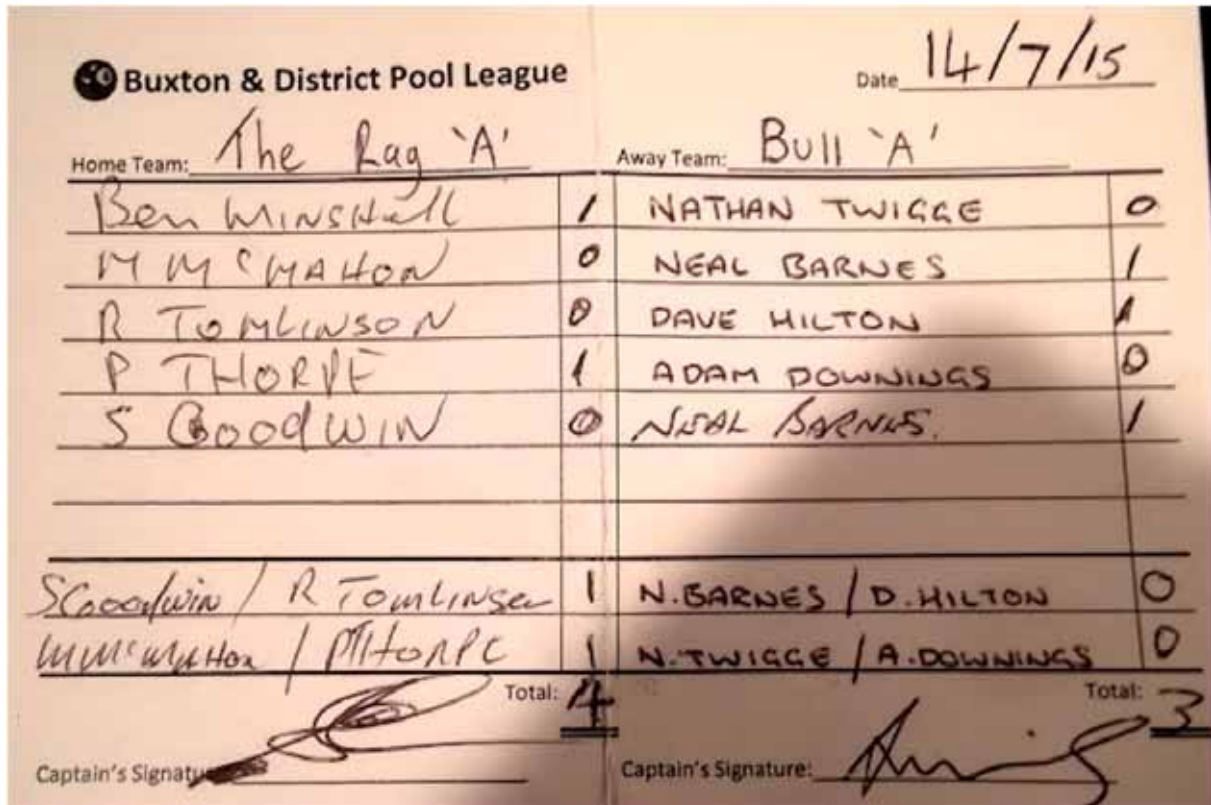 Buxton & District Pool League Date 14/7/15
Home Team: The Rag 'A' Away Team: Bull 'A'
Ben MINSHULL 1 NATHAN TWIGGE 0
M McMAHON 0 NEAL BARNES 1
R TOMLINSON 0 DAVE HILTON 1
P THORPE 1 ADAM DOWNINGS 0
S GoodWIN 0 NEAL BARNES. 1
S Goodwin / R TomLINSon 1 N.BARNES / D.HILTON 0
M McMaHon / P THORPE 1 N.TWIGGE / A.DOWNINGS 0
Total: 4 Total: 3
Captain's Signature: Captain's Signature: